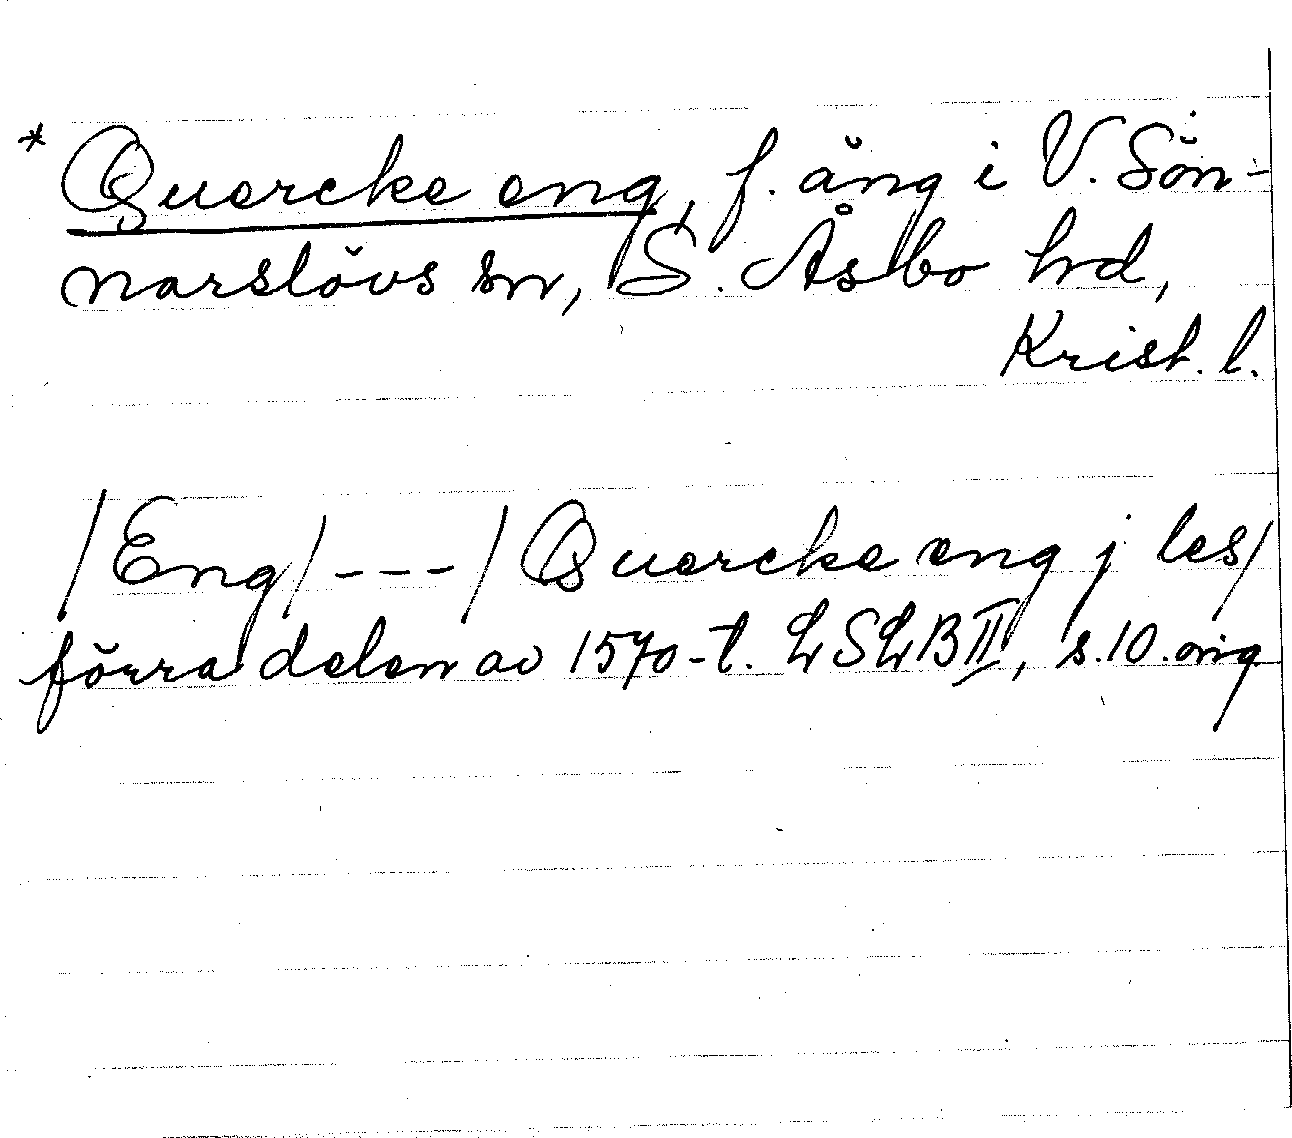 * Quercke eng, f. äng i V. Sön-
narslövs sn, S. Åsbo hd,
Krist. l.
/Eng/ --- / Quercke eng j les/
förra delen av 1570-t. LSLB II, s. 10. orig